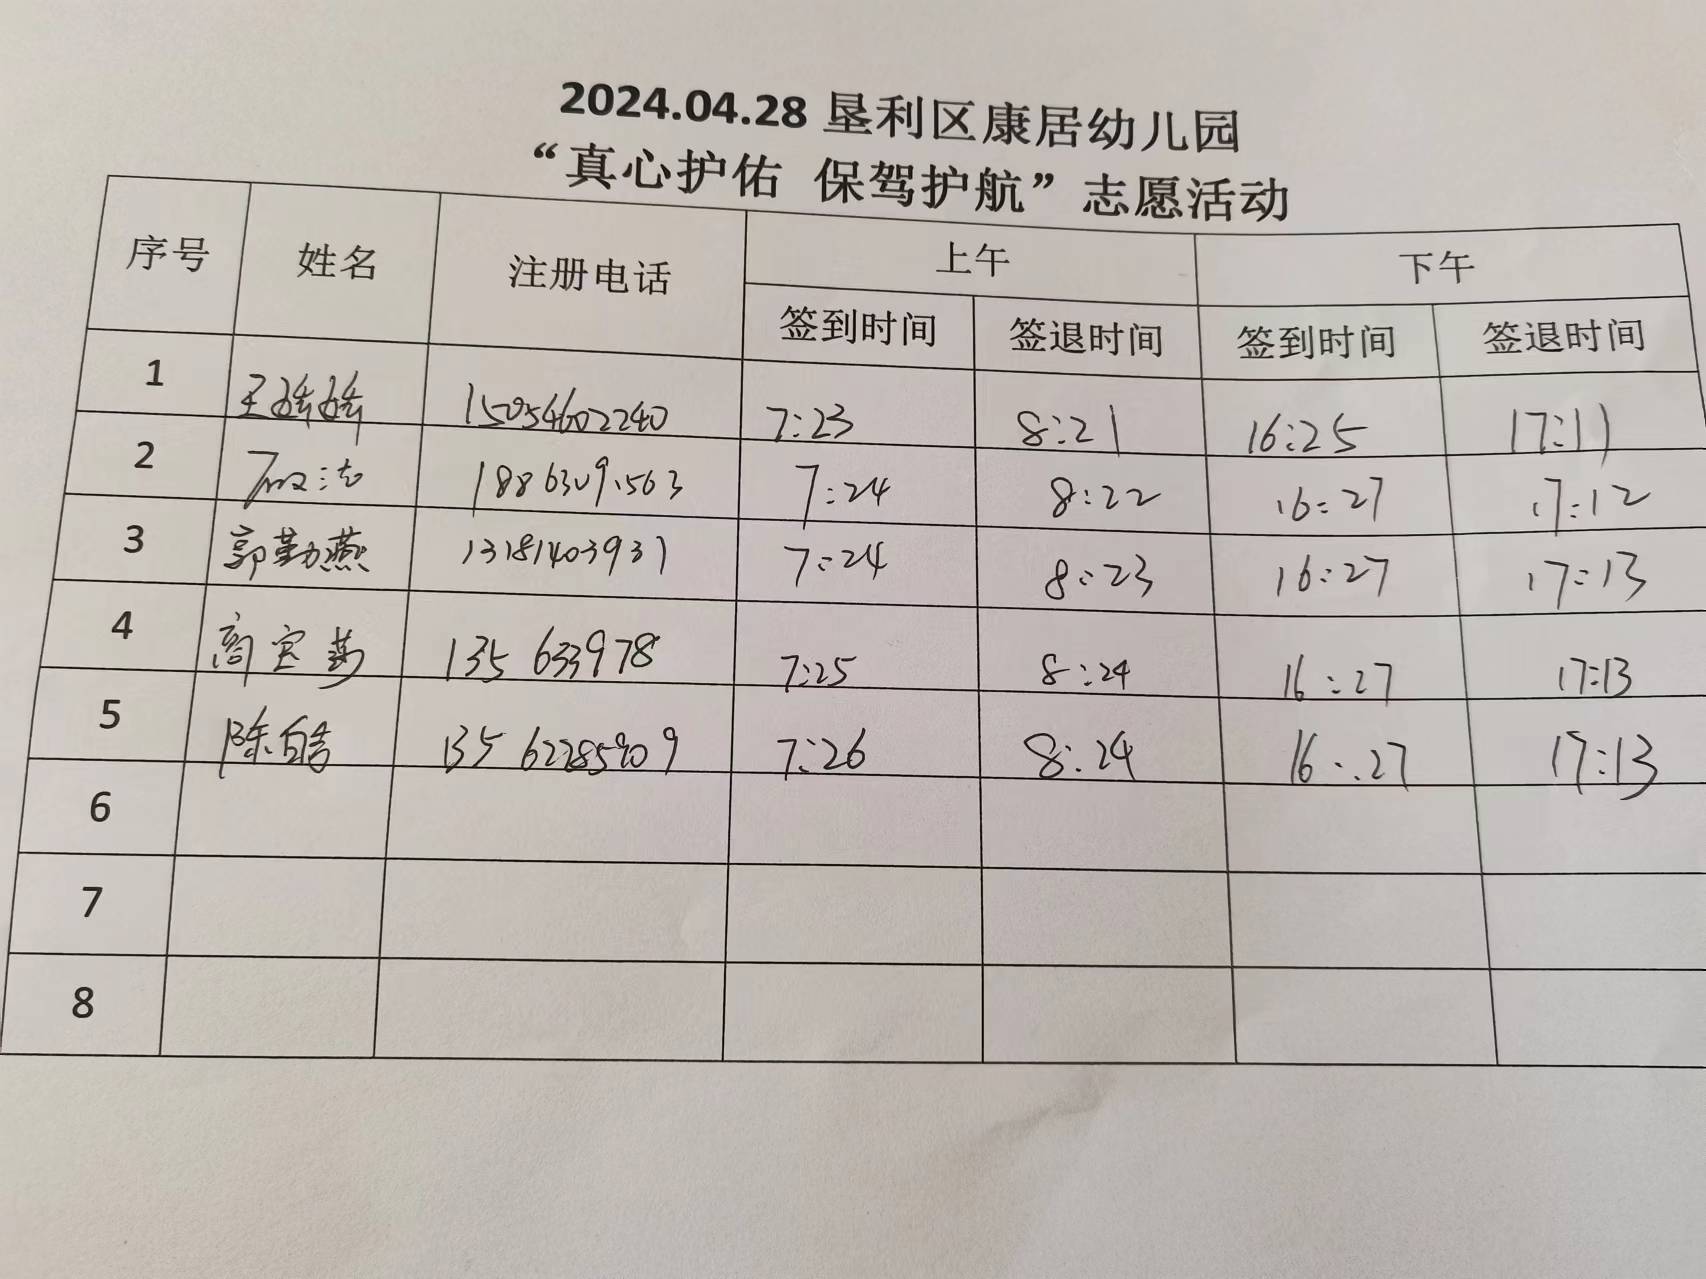 2024.04.28 垦利区康居幼儿园
“真心护佑 保驾护航”志愿活动
序号 姓名 注册电话 上午 下午
签到时间 签退时间 签到时间 签退时间
1 王 15054602240 7:23 8:21 16:25 17:11
2 7:24 8:22 16:27 17:12
3 郭勤燕 13181403931 7:24 8:23 16:27 17:13
4 135633978 7:25 8:24 16:27 17:13
5 陈皓 7:26 8:24 16:27 17:13
6
7
8